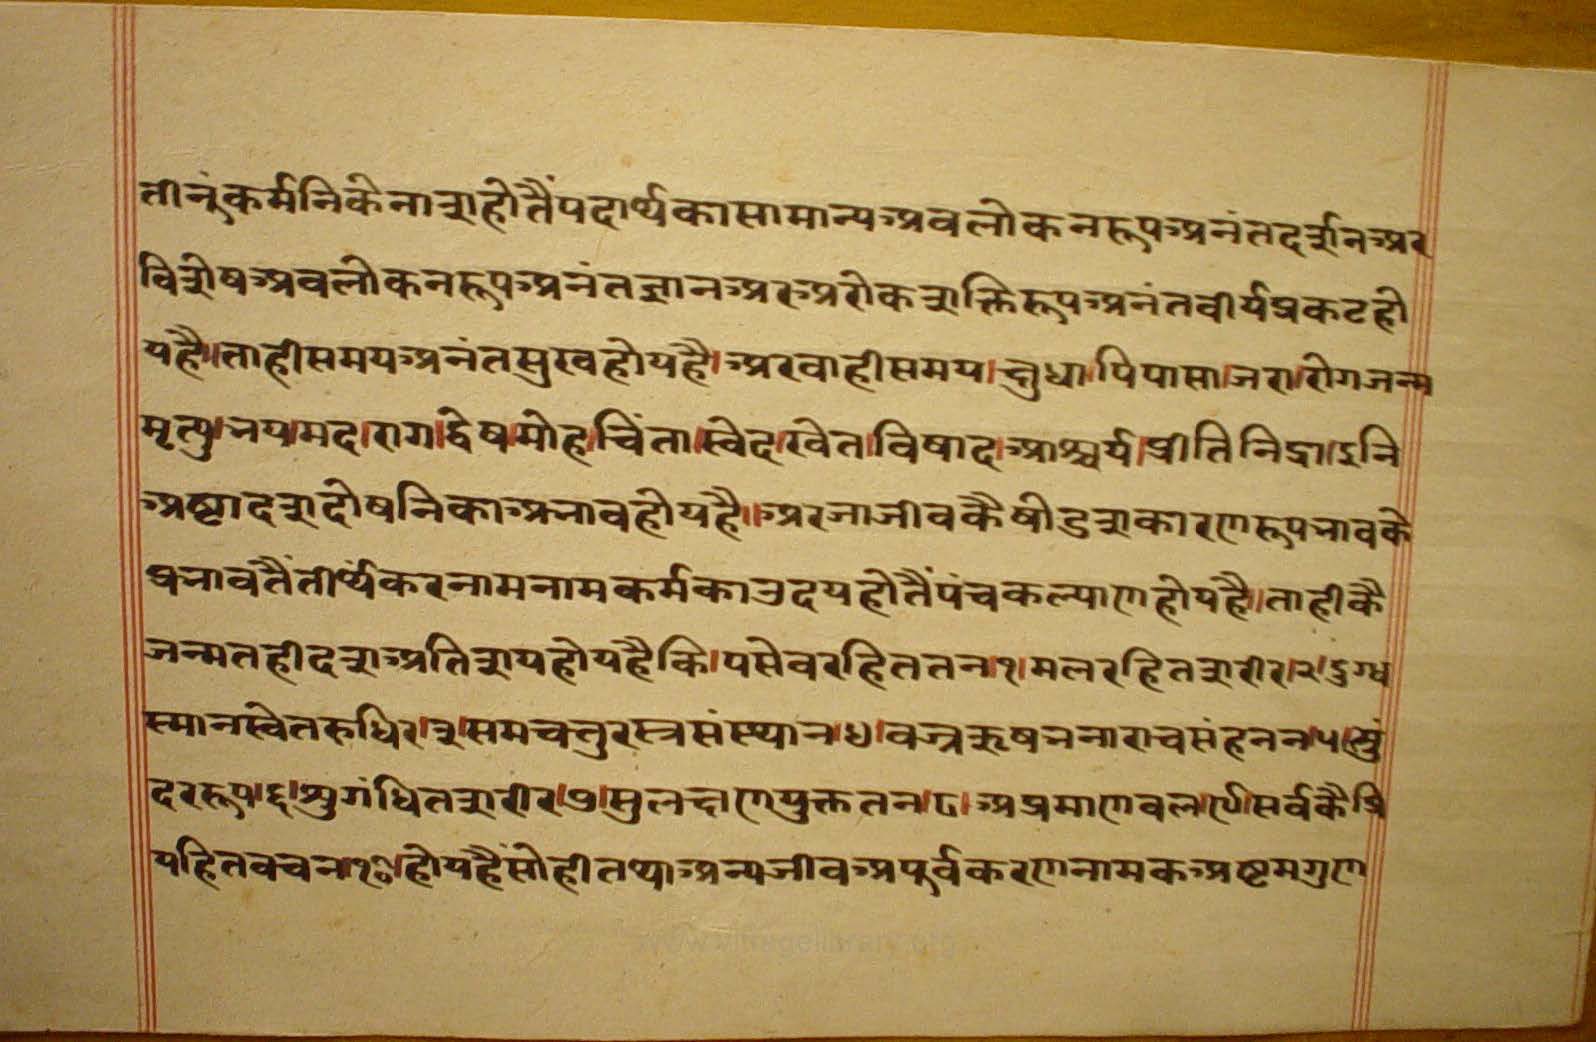 तीनूंकर्मनिकेनाशहोतैंपदार्थकासामान्यअवलोकनरूपअनंतदर्शनअर
विशेषअवलोकनरूपअनंतज्ञानअरअरोकशक्तिरूपअनंतवीर्यप्रकटहो
यहै॥ताहीसमयअनंतसुखहोयहै।अरवाहीसमय।क्षुधा।पिपासा।जरा।रोगजन्म
मृत्यु।भय।मद।राग।द्वेष।मोह।चिंता।स्वेद।खेत।विषाद।आश्चर्य।प्रीतिनिद्रा।इनि
अष्टादशदोषनिकाअभावहोयहै॥अरजाजीवकैषोडशकारणरूपभावके
प्रभावतैंतीर्थंकरनामनामकर्मकाउदयहोतैंपंचकल्याणहोयहै॥ताहीकै
जन्मतहीदशअतिशयहोयहैकि।पसेवरहिततन।१।मलरहितशरीर।२।दुग्ध
स्मानस्वेतरुधिर।३।समचतुरस्त्रसंस्थान।४।वज्रऋषभनाराचसंहनन।५।सुं
दररूप।६।सुगंधितशरीर।७।सुलक्षणयुक्ततन।८।अप्रमाणवल।९।सर्वकैप्रि
यहितवचन।१०।होयहैंसोहीतथाअन्यजीवअपूर्वकरणनामकअष्टमगुण